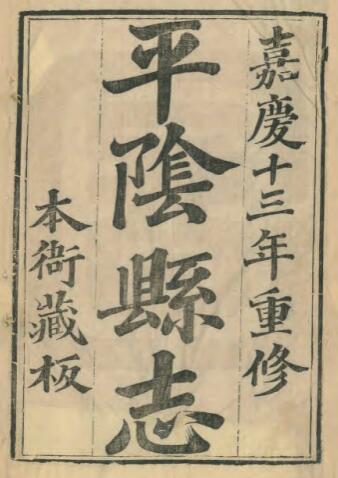 嘉慶十三年重修
平陰縣志
本衙藏板